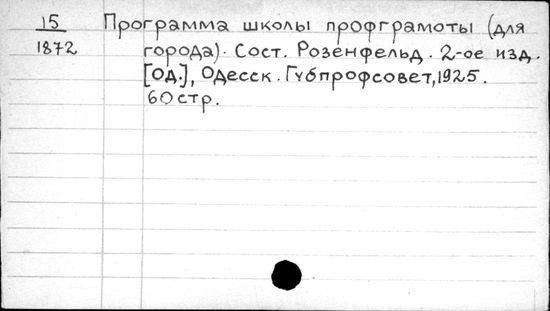 15 Программа школы профграмоты (для
1872 города). Сост. Розенфельд. 2-ое изд.
[Од.], Одесск. Губпрофсовет, 1925.
60 стр.